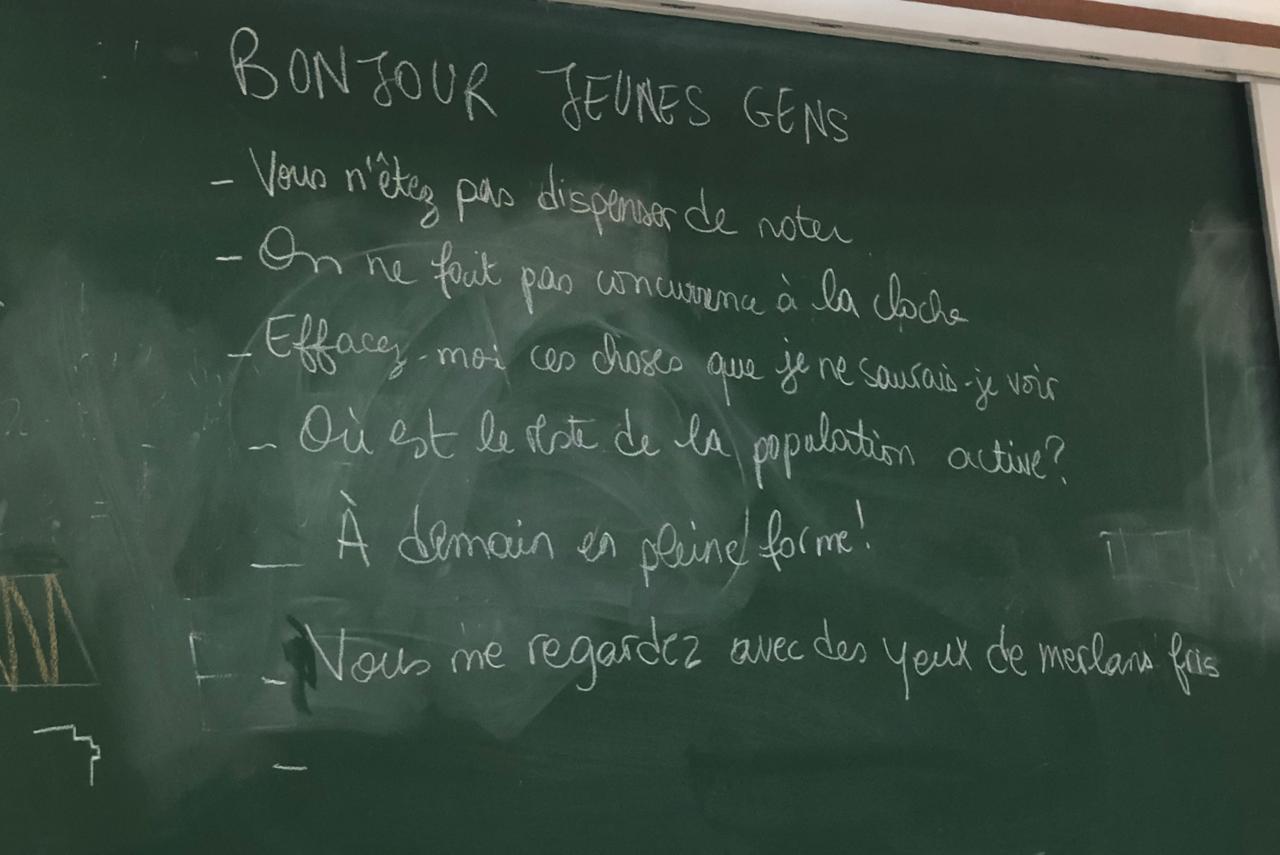 BONJOUR JEUNES GENS
- Vous n'êtez pas dispenser de noter
- On ne fait pas concurrence à la cloche
- Effacez-moi ces choses que je ne saurais-je voir
- Où est le reste de la population active?
- À demain en pleine forme!
- Vous me regardez avec des yeux de merlans fris
-